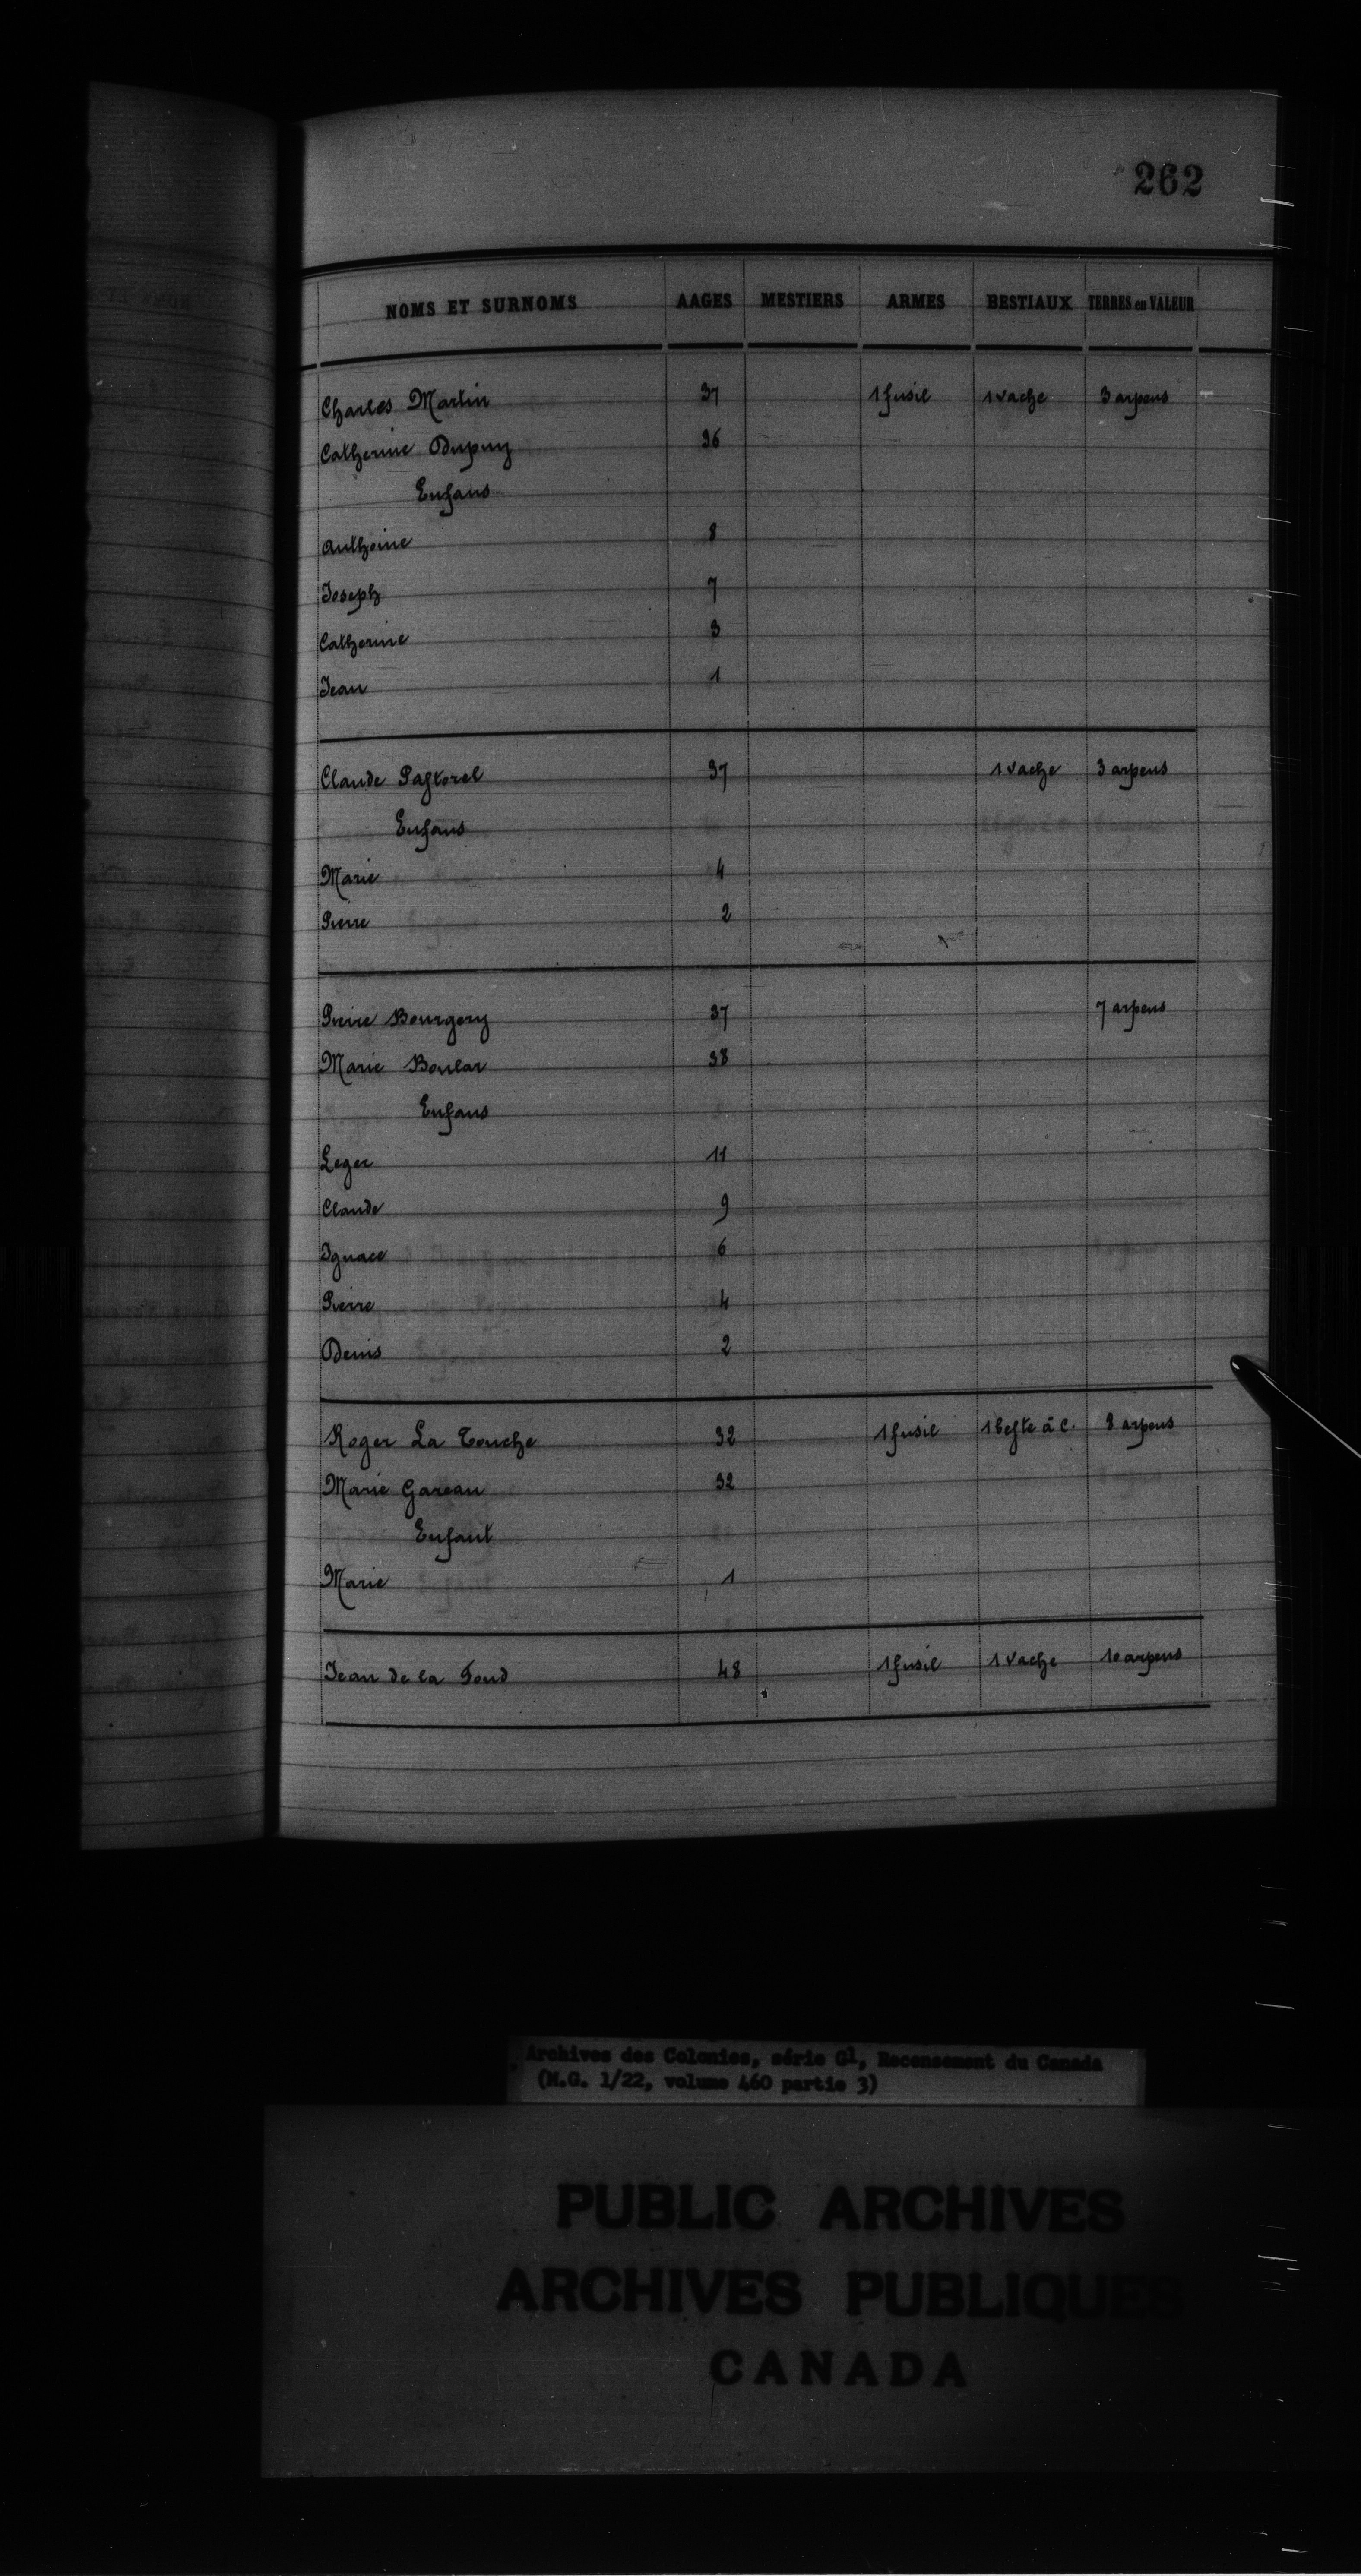 262
NOMS ET SURNOMS AAGES MESTIERS ARMES BESTIAUX TERRES en VALEUR
Charles Martin 37 1 fusil 1 vache 3 arpens
Catherine Dupuy 36
Enfans
Anthoine 8
Joseph 7
Catherine 3
Jean 1
Claude Pastorel 37 1 vache 3 arpens
Enfans
Marie 4
Pierre 2
Pierre Bourgery 37 7 arpens
Marie Boular 38
Enfans
Leger 11
Claude 9
Ignace 6
Pierre 4
Denis 2
Roger La Touche 32 1 fusil 1 beste à c. 8 arpens
Marie Gareau 32
Enfant
Marie 1
Jean de la Fond 48 1 fusil 1 vache 10 arpens
Archives des Colonies, série G1, Recensement du Canada
(M.G. 1/22, volume 460 partie 3)
PUBLIC ARCHIVES
ARCHIVES PUBLIQUES
CANADA